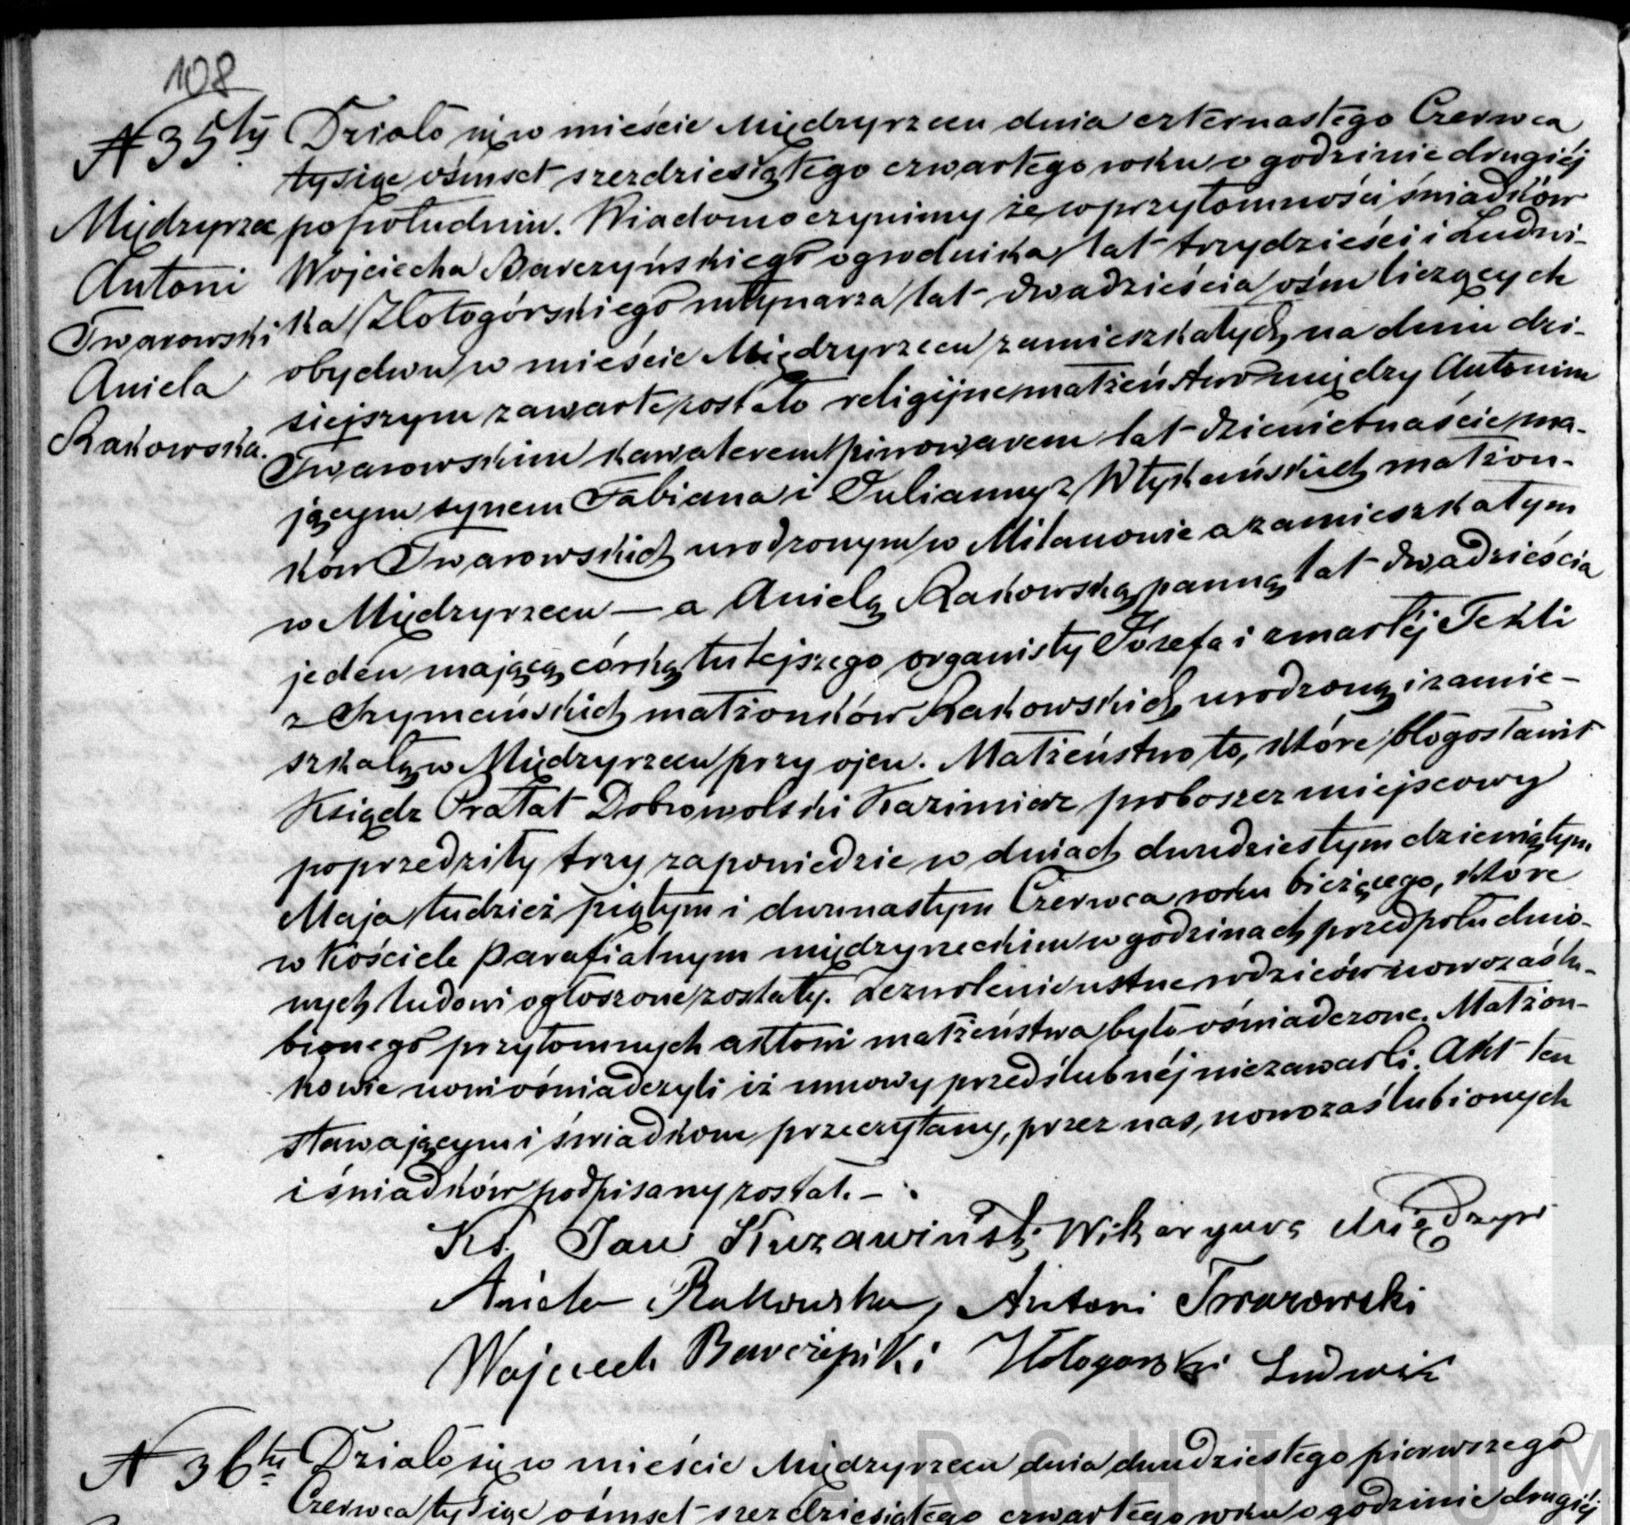 108
N 35ty
Międzyrzec
Antoni
Twarowski
Aniela
Rakowska.
Działo się w mieście Międzyrzecu dnia czternastego Czerwca
tysiąc ośmset szezdziesiątego czwartego roku o godzinie drugiéj
po południu. Wiadomo czynimy że w przytomności świadków
Wojciecha Barczyńskiego ogrodnika lat trzydzieści i Ludwi-
ka Złotogórskiego młynarza lat dwadzieścia ośm liczących
obydwu w mieście Międzyrzecu zamieszkałych, na dniu dzi-
siejszym zawarte zostało religijne małżeństwo między Antonim
Twarowskim kawalerem piwowarem lat dziewietnaście ma-
jącym synem Fabiana i Julianny z małżon-
ków Twarowskich urodzonym w Milanowie a zamieszkałym
w Międzyrzecu — a Anielą Rakowską panną lat dwadzieścia
jeden mającą córką tutejszego organisty Józefa i zmarłéj Tekli
z Szymańskich małżonków Rakowskich urodzoną i zamie-
szkałą w Międzyrzecu przy ojcu. Małżeństwo to, które błogosławił
Ksiądz Prałat Dobrowolski Kazimierz proboszcz miejscowy
poprzedziły trzy zapowiedzie w dniach dwudziestym dziewiątym
Maja tudzież piątym i dwunastym Czerwca roku bieżącego, które
w kościele parafialnym międzyrzeckim w godzinach przedpołudnio-
wych ludowi ogłoszone zostały. Zezwolenie ustne rodziców nowozaślu-
bionego przytomnych aktowi małżeństwa było oświadczone. Małżon-
kowie nowi oświadczyli iż umowy przedślubnéj niezawarli. Akt ten
stawającym i świadkom przeczytany, przez nas, nowozaślubionych
i świadków podpisany został. —
Ks. Jan Kurzawiński Wikaryusz Międzyrz
Aniela Rakowska, Antoni Twarowski
Wojciech Barczyński Złotogorski Ludwik
N 36ty
Działo się w mieście Międzyrzecu dnia dwudziestego pierwszego
Czerwca tysiąc ośmset szezdziesiątego czwartego roku o godzinie drugiéj
ARCHIWUM